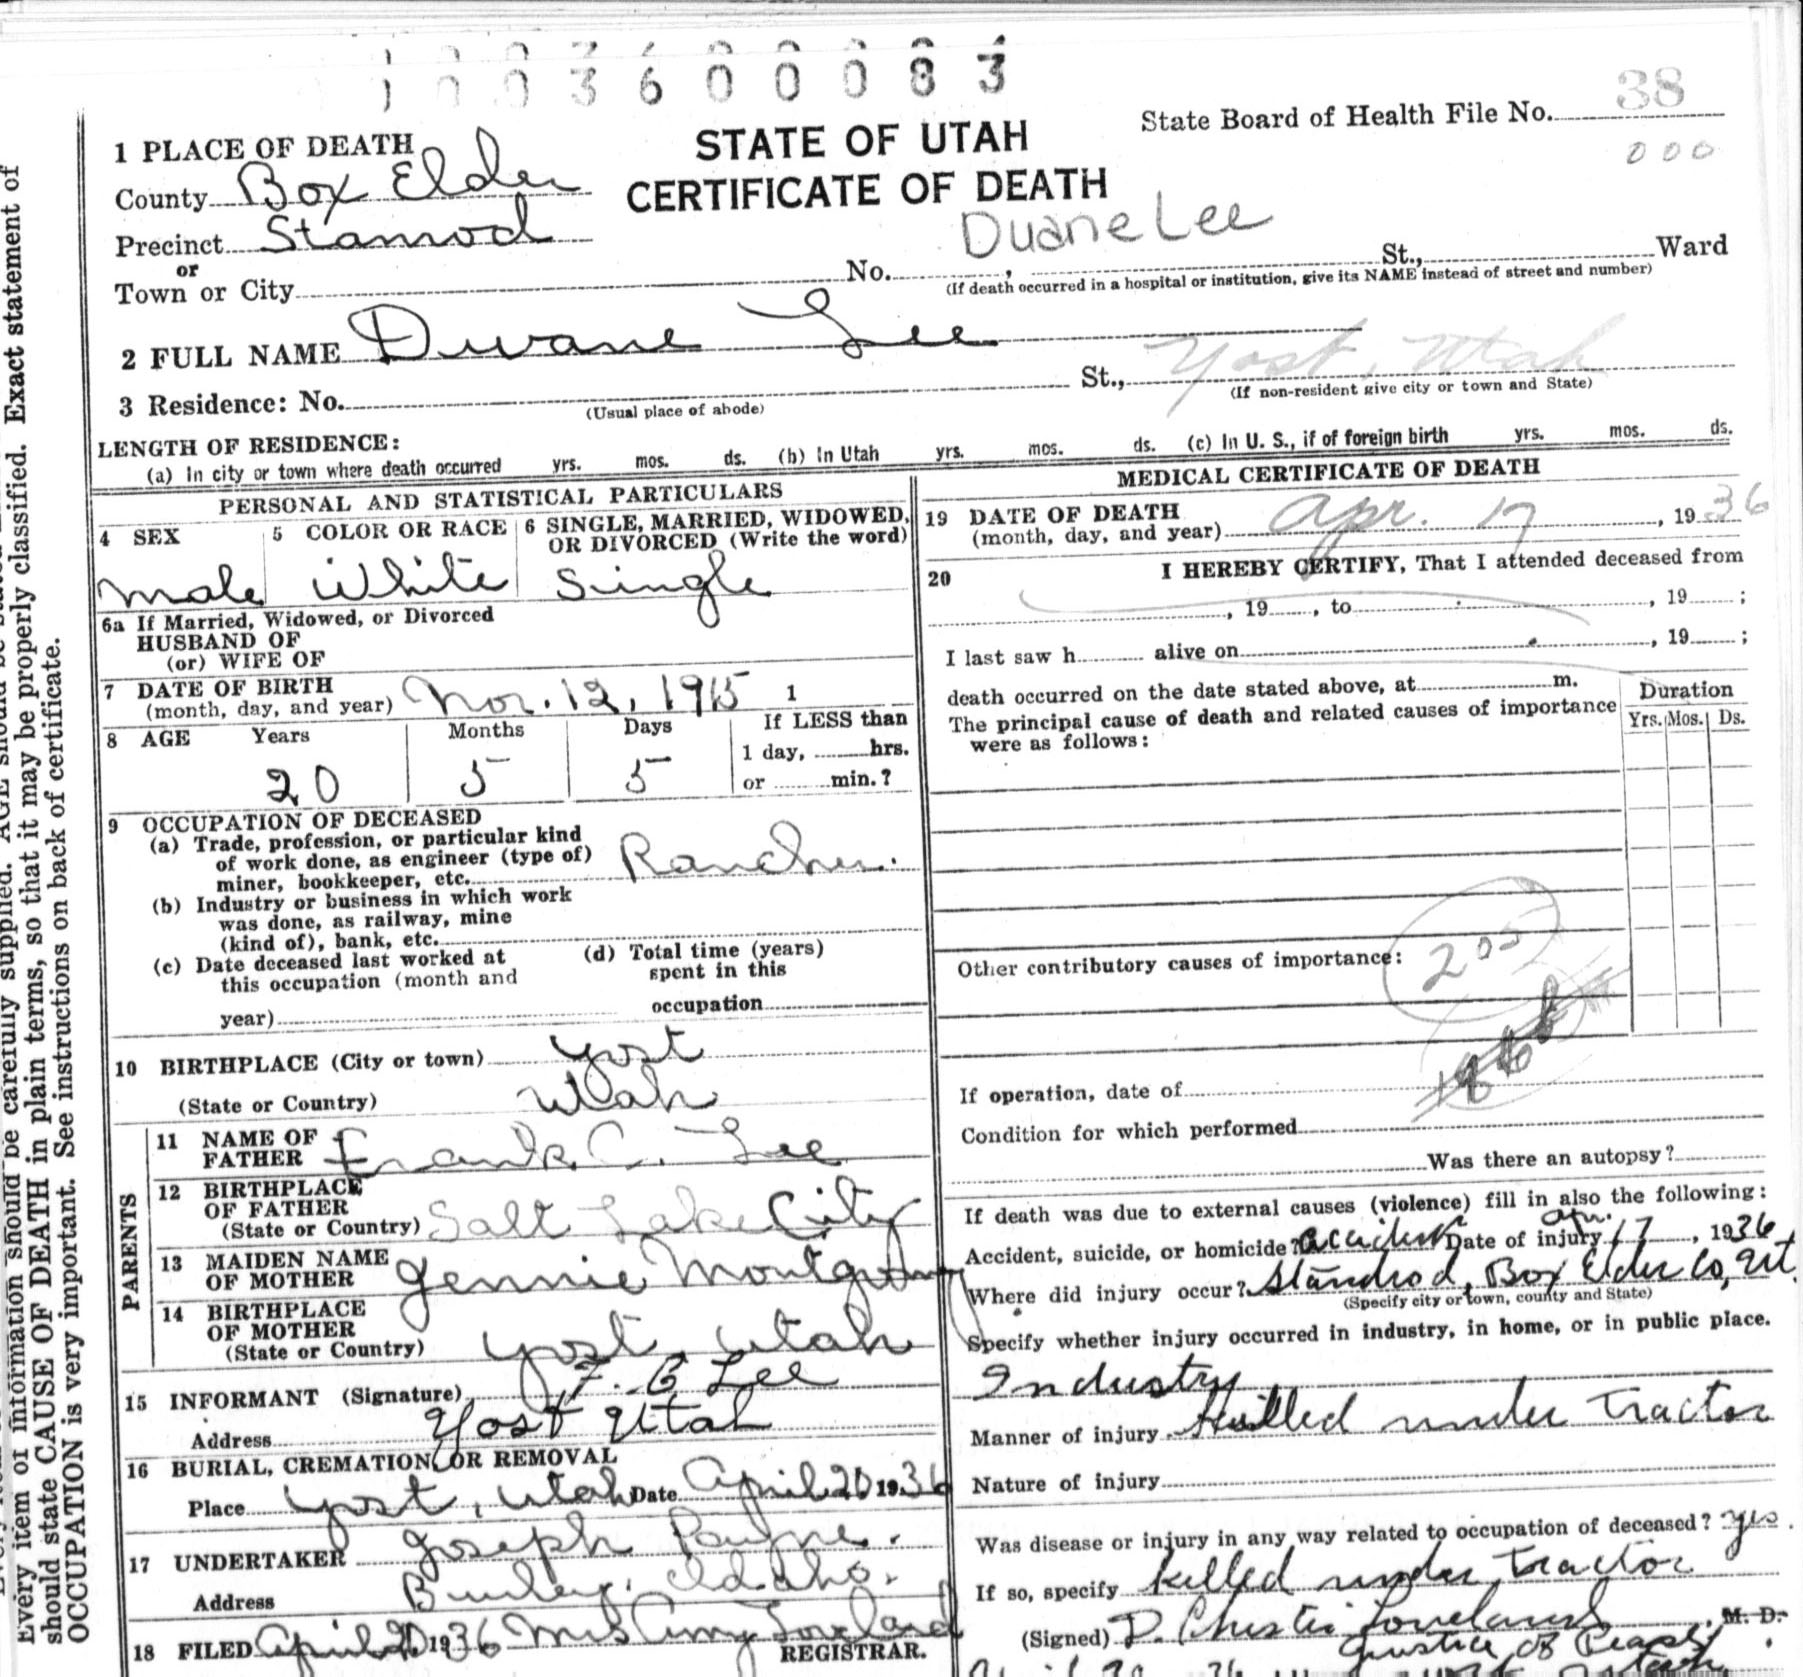 1 0 0 3 6 0 0 0 8 3
State Board of Health File No. 38
000
STATE OF UTAH
CERTIFICATE OF DEATH
1 PLACE OF DEATH
County Box Elder
Precinct Stanrod
Duane Lee
or
Town or City No. , St., Ward
(If death occurred in a hospital or institution, give its NAME instead of street and number)
2 FULL NAME Duane Lee
3 Residence: No. St., Yost, Utah
(Usual place of abode) (If non-resident give city or town and State)
LENGTH OF RESIDENCE:
(a) In city or town where death occurred yrs. mos. ds. (b) In Utah yrs. mos. ds. (c) In U. S., if of foreign birth yrs. mos. ds.
PERSONAL AND STATISTICAL PARTICULARS
4 SEX
male
5 COLOR OR RACE
White
6 SINGLE, MARRIED, WIDOWED, OR DIVORCED (Write the word)
Single
6a If Married, Widowed, or Divorced
HUSBAND OF
(or) WIFE OF
7 DATE OF BIRTH
(month, day, and year) Nov. 12, 1915 1
8 AGE Years Months Days If LESS than
1 day, hrs.
20 5 5 or min.?
9 OCCUPATION OF DECEASED
(a) Trade, profession, or particular kind
of work done, as engineer (type of)
miner, bookkeeper, etc. Rancher.
(b) Industry or business in which work
was done, as railway, mine
(kind of), bank, etc.
(c) Date deceased last worked at
this occupation (month and
year)
(d) Total time (years)
spent in this
occupation
10 BIRTHPLACE (City or town) Yost
(State or Country) Utah
PARENTS
11 NAME OF
FATHER Frank C. Lee
12 BIRTHPLACE
OF FATHER
(State or Country) Salt Lake City
13 MAIDEN NAME
OF MOTHER Jennie Montgomery
14 BIRTHPLACE
OF MOTHER
(State or Country) Yost, Utah
15 INFORMANT (Signature) F. C. Lee
Address Yost Utah
16 BURIAL, CREMATION, OR REMOVAL
Place Yost, Utah Date April 20 1936
17 UNDERTAKER Joseph Payne.
Address Burley, Idaho.
18 FILED April 20 1936 Mrs Amy Loveland
REGISTRAR.
MEDICAL CERTIFICATE OF DEATH
19 DATE OF DEATH
(month, day, and year) Apr. 17, 1936
20 I HEREBY CERTIFY, That I attended deceased from
, 19 , to , 19 ;
I last saw h alive on , 19 ;
death occurred on the date stated above, at m.
The principal cause of death and related causes of importance
were as follows:
Duration
Yrs. Mos. Ds.
Other contributory causes of importance:
If operation, date of
Condition for which performed
Was there an autopsy?
If death was due to external causes (violence) fill in also the following:
Accident, suicide, or homicide? accident Date of injury Apr. 17, 1936
Where did injury occur? Standrod, Box Elder Co, Ut.
(Specify city or town, county and State)
Specify whether injury occurred in industry, in home, or in public place.
Industry
Manner of injury Killed under tractor
Nature of injury
Was disease or injury in any way related to occupation of deceased? yes.
If so, specify killed under tractor
(Signed) D. Christie Loveland, M. D.
Justice of Peace
Every item of information should be carefully supplied. AGE should be stated
should state CAUSE OF DEATH in plain terms, so that it may be properly classified. Exact statement of
OCCUPATION is very important. See instructions on back of certificate.